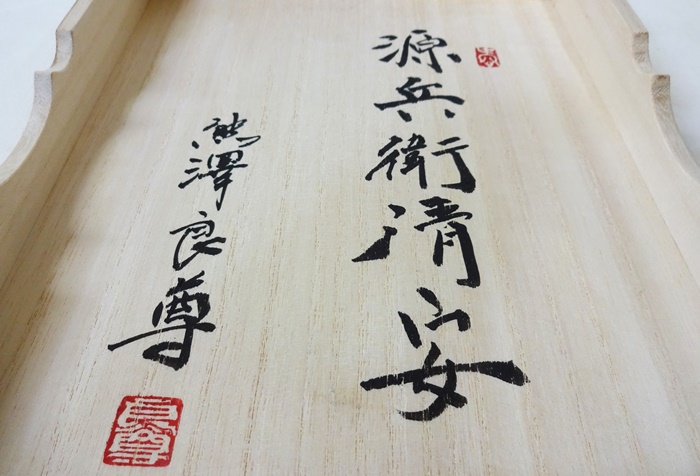 源兵衛清安
熊澤良尊
良尊